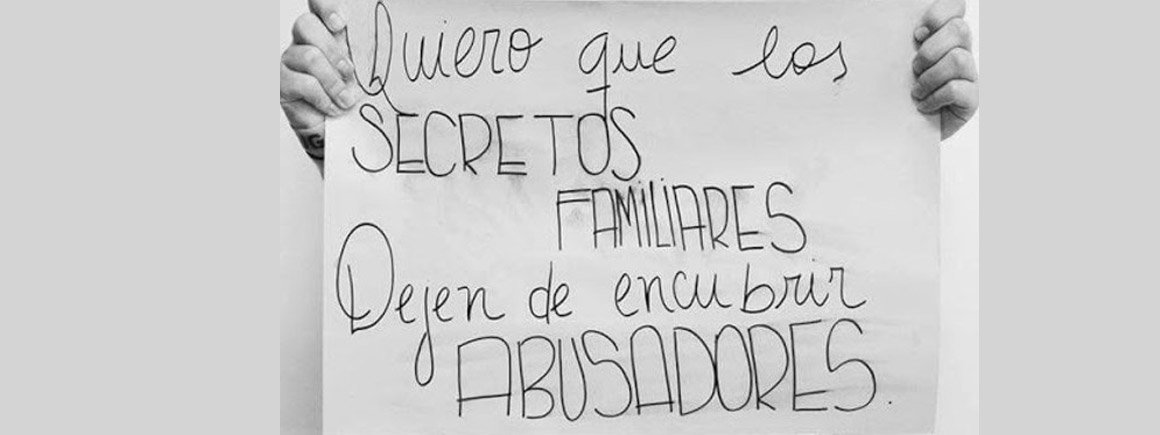 Quiero que los
SECRETOS
FAMILIARES
Dejen de encubrir
ABUSADORES.